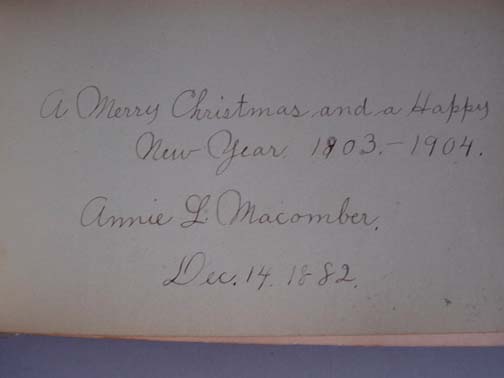 A Merry Christmas and a Happy
New Year 1903.-1904.
Annie L. Macomber.
Dec. 14. 1882.